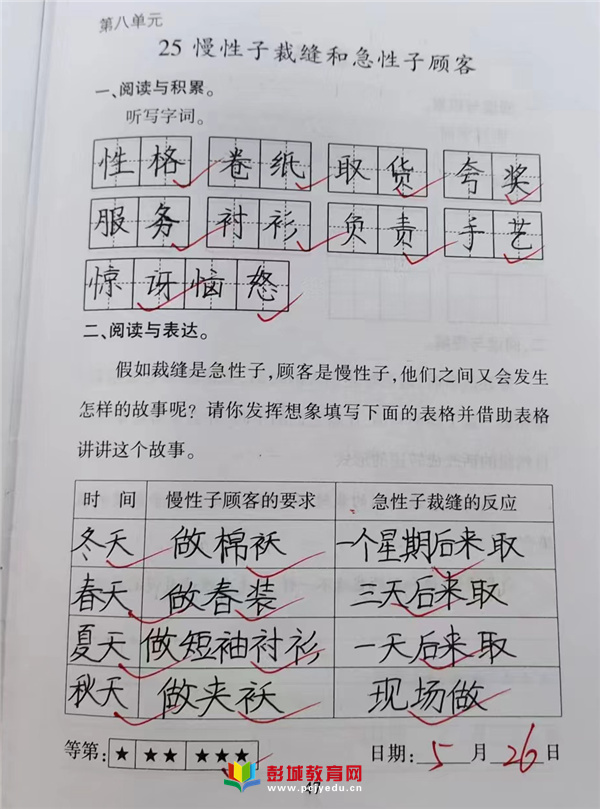 第八单元
25 慢性子裁缝和急性子顾客
一、阅读与积累。
听写字词。
性格 卷纸 取货 夸奖
服务 衬衫 负责 手艺
惊讶恼怒
二、阅读与表达。
假如裁缝是急性子,顾客是慢性子,他们之间又会发生
怎样的故事呢? 请你发挥想象填写下面的表格并借助表格
讲讲这个故事。
时 间 慢性子顾客的要求 急性子裁缝的反应
冬天 做棉袄 一个星期后来取
春天 做春装 三天后来取
夏天 做短袖衬衫 一天后来取
秋天 做夹袄 现场做
等第: ★ ★ ★ ★ ★ 日期: 5 月 26 日
彭城教育网
www.pcjyedu.cn
47